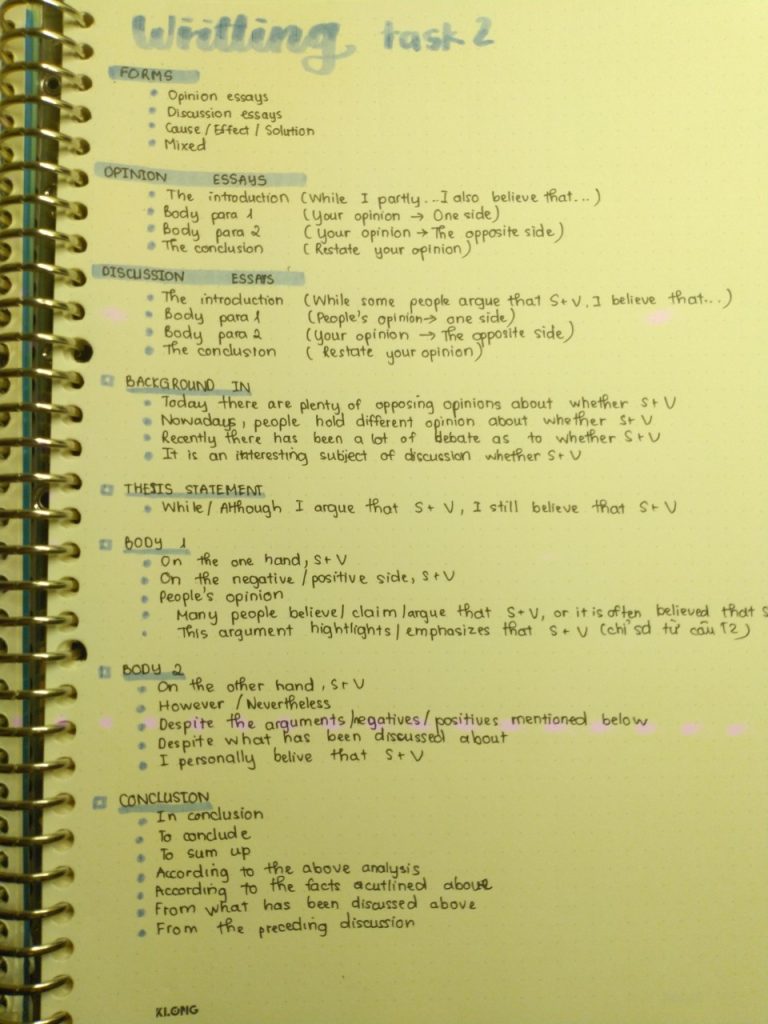 Writting task 2
FORMS
Opinion essays
Discussion essays
Cause / Effect / Solution
Mixed
OPINION ESSAYS
The introduction (While I partly...I also believe that...)
Body para 1 (Your opinion → One side)
Body para 2 (Your opinion → The opposite side)
The conclusion (Restate your opinion)
DISCUSSION ESSAYS
The introduction (While some people argue that S+V, I believe that...)
Body para 1 (People's opinion → one side)
Body para 2 (Your opinion → The opposite side)
The conclusion (Restate your opinion)
BACKGROUND IN
Today there are plenty of opposing opinions about whether S+V
Nowadays, people hold different opinion about whether S+V
Recently there has been a lot of debate as to whether S+V
It is an interesting subject of discussion whether S+V
THESIS STATEMENT
While / Although I argue that S+V, I still believe that S+V
BODY 1
On the one hand, S+V
On the negative / positive side, S+V
People's opinion
Many people believe / claim / argue that S+V, or it is often believed that S
This argument hightlights / emphasizes that S+V (chỉ sd từ câu T2)
BODY 2
On the other hand, S+V
However / Nevertheless
Despite the arguments / negatives / positives mentioned below
Despite what has been discussed about
I personally belive that S+V
CONCLUSION
In conclusion
To conclude
To sum up
According to the above analysis
According to the facts acutlined above
From what has been discussed above
From the preceding discussion
KLONG